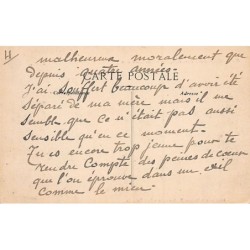 malheureux moralement que
depuis quatre années
CARTE POSTALE
J'ai souffert beaucoup d'avoir été
Séparé de ma mère mais il me
semble que ce n'était pas aussi
sensible qu'en ce moment.
Tu es encore trop jeune pour te
rendre Compte des peines de cœur
que l'on éprouve dans un exil
comme le mien